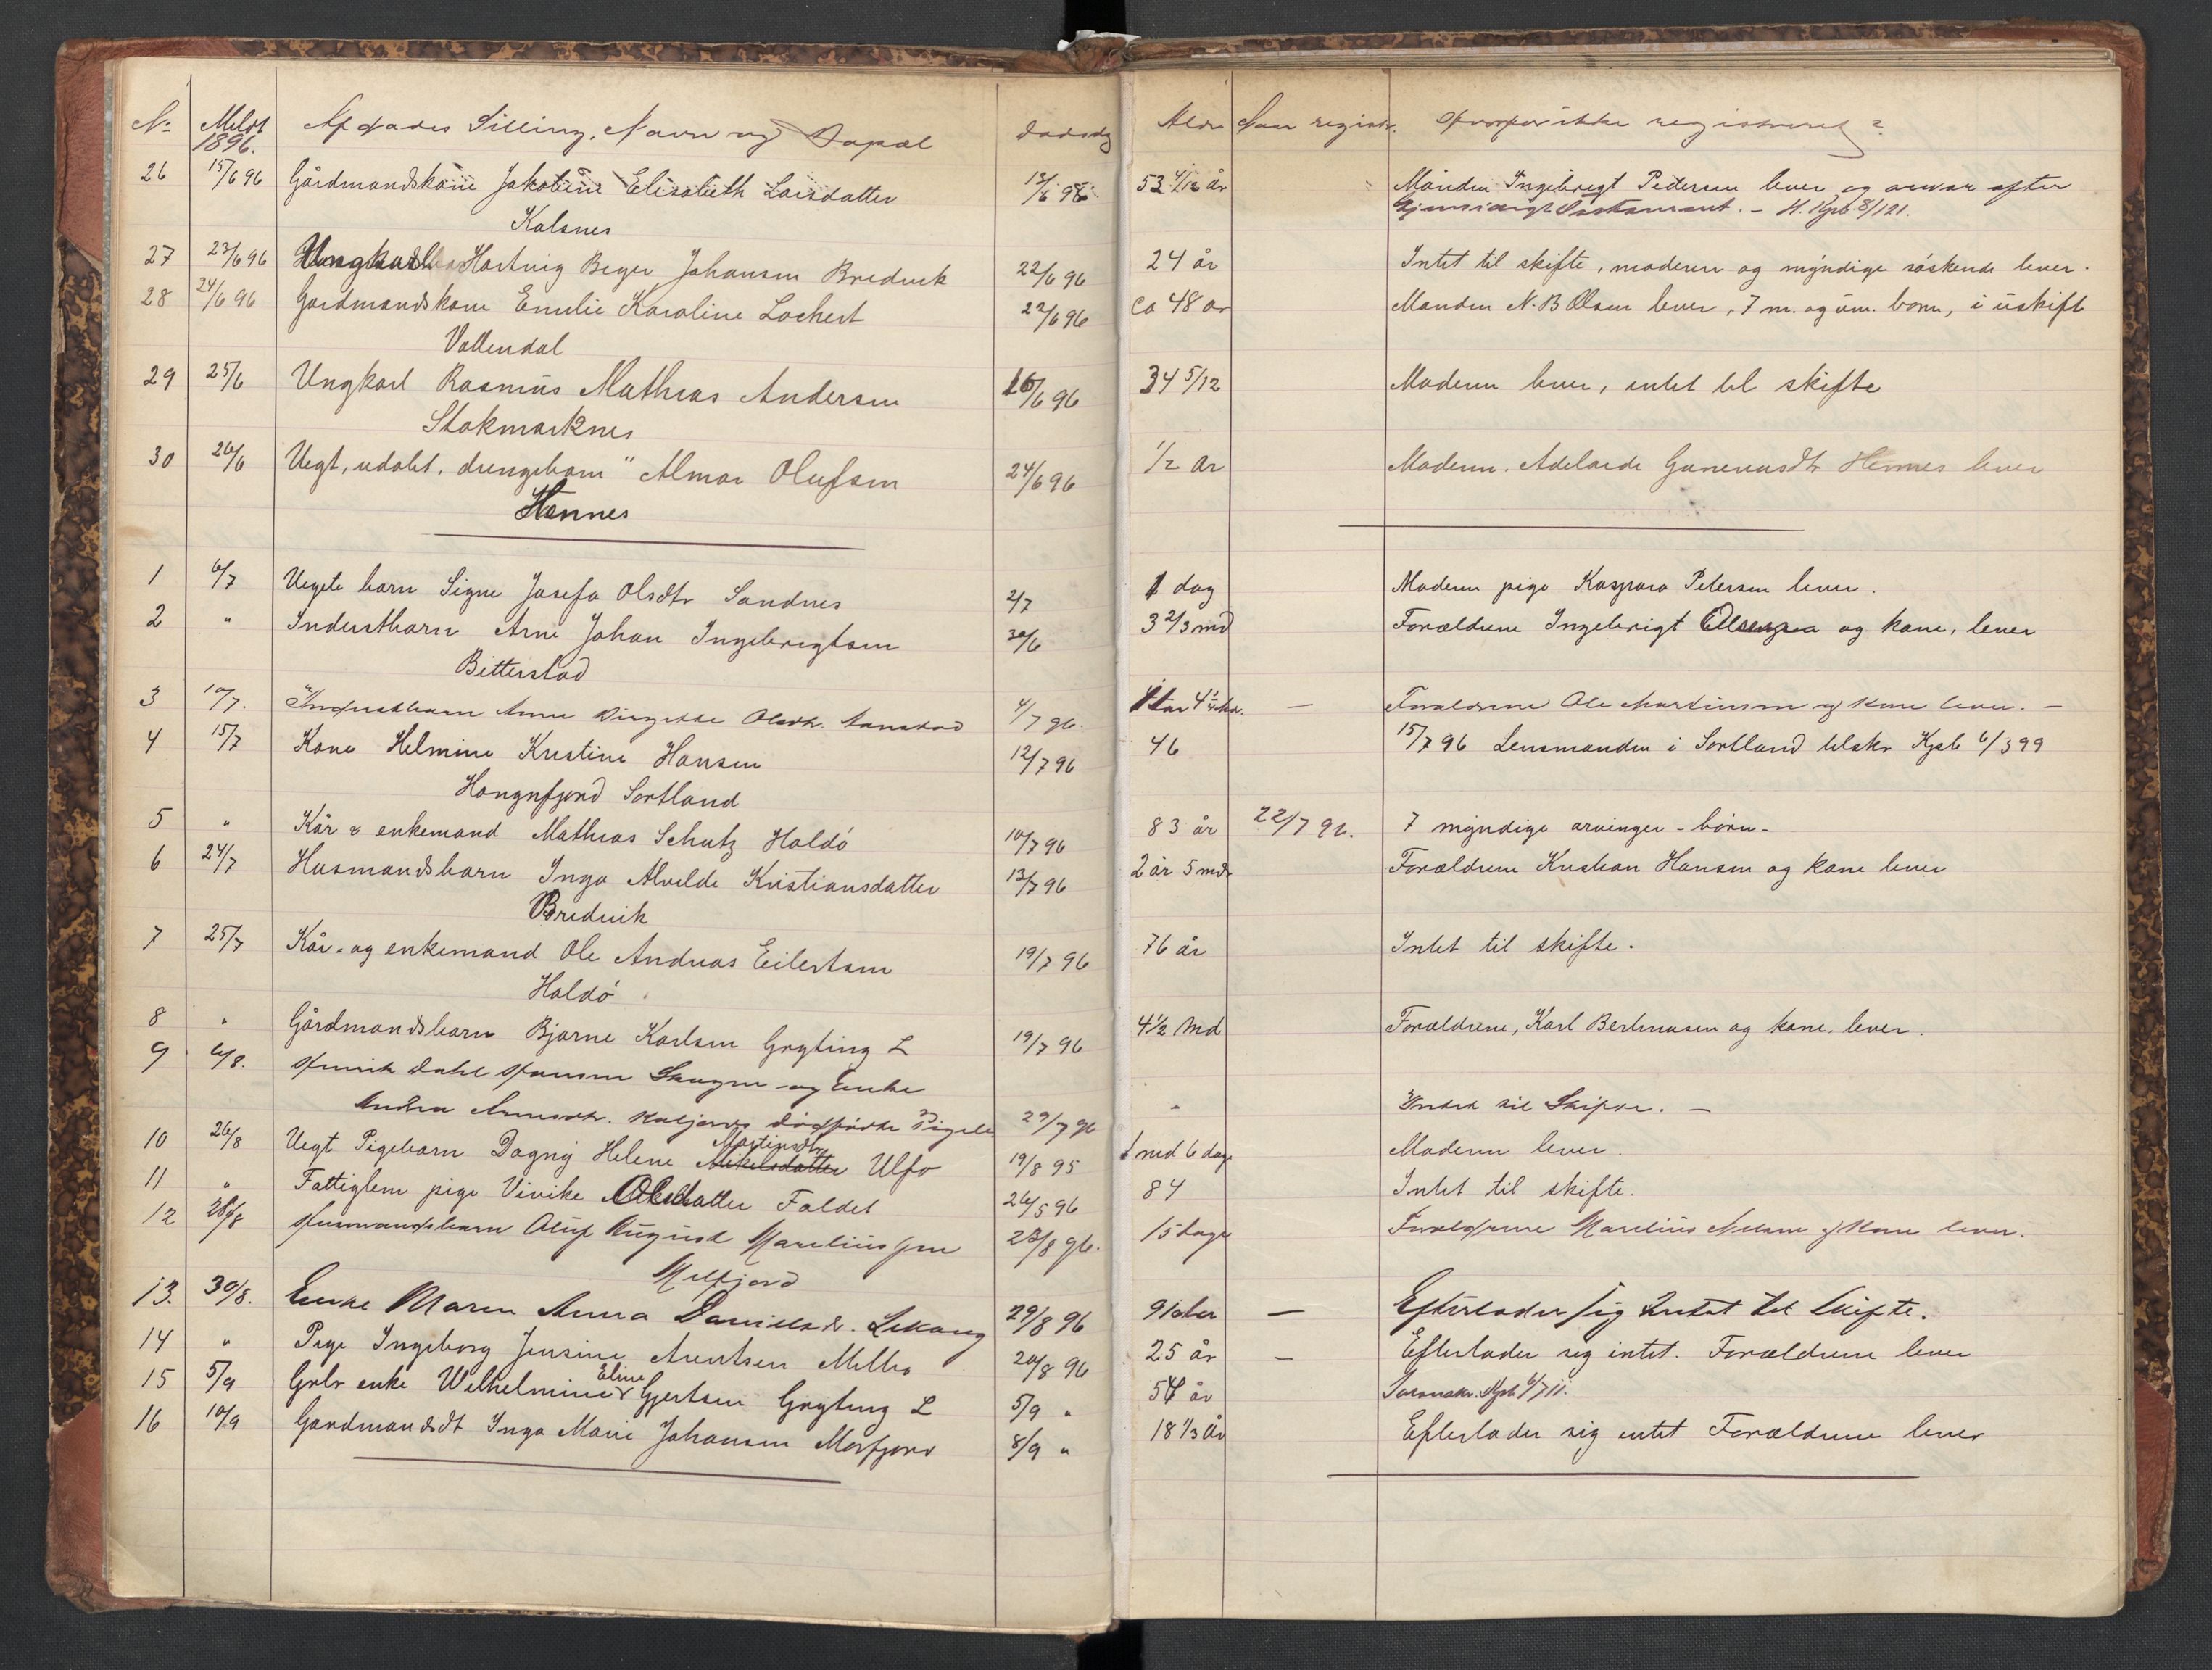 No Meldt Afdødes Stilling, Navn og Bopæl Dødsdag Alder Naar registr. Hvorfor ikke registreret?
1896.
26 15/6 96 Gårdmandskone Jakobine Elisabeth Larsdatter 13/6 96 53 4/12 år Manden Ingebrigt Pedersen lever og arver efter
Kalsnes gjensidigt Testament. – H. Kpb. 8/121.
27 23/6 96 Ungkarl Hartvig Beyer Johansen Bredvik 22/6 96 24 år Intet til skifte, moderen og myndige søskende lever.
28 24/6 96 Gardmandskone Emilie Karoline Lockert 22/6 96 ca 48 år Manden N. B Olsen lever, 7 m. og um. børn, i uskift
Vollendal
29 25/6 Ungkarl Rasmus Mathias Andersen 16/6 96 34 5/12 Moderen lever, intet til skifte
Stokmarknes
30 26/6 Uegt, udøbt, drengebarn "Almar Olufsen 24/6 96 1/2 år Moderen. Adelaide Hennes lever
Hennes
1 6/7 Uegte barn Signe Josefa Olsdtr Sandnes 2/7 1 dag Moderen pige Kaspara Petersen lever.
2 " Inderstbarn Arne Johan Ingebrigtsen 30/6 3 2/3 md Forældrene Ingebrigt og kone, lever
Bitterstad
3 10/7. Inderstbarn Anna Birgitte Olsdtr. 4/7 96. – Forældrene Ole Martinsen og Kone lever. –
4 15/7 Kone Helmine Kristine Hansen 12/7 96 46 15/7 96 Lensmanden i Sortland tilskr Kpb 6/399
Hongnfjord Sortland
5 " Kår & enkemand Mathias Schutz Haldö 10/7 96 83 år 22/7 96. 7 myndige arvinger – börn –
6 24/7 Husmandsbarn Inga Alvilde Kristiansdatter 13/7 96 2 år 5 mdr Forældrene Kristian Hansen og kone lever
Bredvik
7 25/7 Kår- og enkemand Ole Andreas Eilertsen 19/7 96 76 år Intet til skifte.
Haldö
8 " Gårdmandsbarn Bjarne Karlsen Grytting L 19/7 96 4 1/2 Md Forældrene, Karl Berthinusen og kone, lever.
9 6/8. Henrik Dahl Hansen Skogen og Enke
Andrea Arnesdtr. Kaljord dødfødte Pigeb 29/7 96 " Intet til Skifte. –
10 26/8 Uegt Pigebarn Dagny Helene Mikelsdatter Martinsdtr Ulfø 19/8 95 1 md 6 dage Moderen lever.
11 " Fattiglem pige Vivike Olsdatter Foldet 26/5 96 84 Intet til skifte.
12 28/8 Husmandsbarn Oluf August Mareliussen 23/8 96. 15 dage Forældrene Marelius Nilsen og Kone lever.
Melfjord
13. 30/8. Enke Maren Anna Danielsdr. Lekang 29/8 96 91 aar – Efterlader sig Intet til Skifte.
14 " Pige Ingeborg Jensine Arentsen Melbo 20/8 96 25 år – Efterlader sig intet. Forældrene lever
15 5/9 Grbr enke Wilhelmine Eline Gjertsen Grytting L 5/9 " 54 år Kpb 6/711.
16 10/9 Gardmandsdt Inga Marie Johansen Morfjord 8/9 " 18 1/3 år Efterlader sig intet Forældrene lever